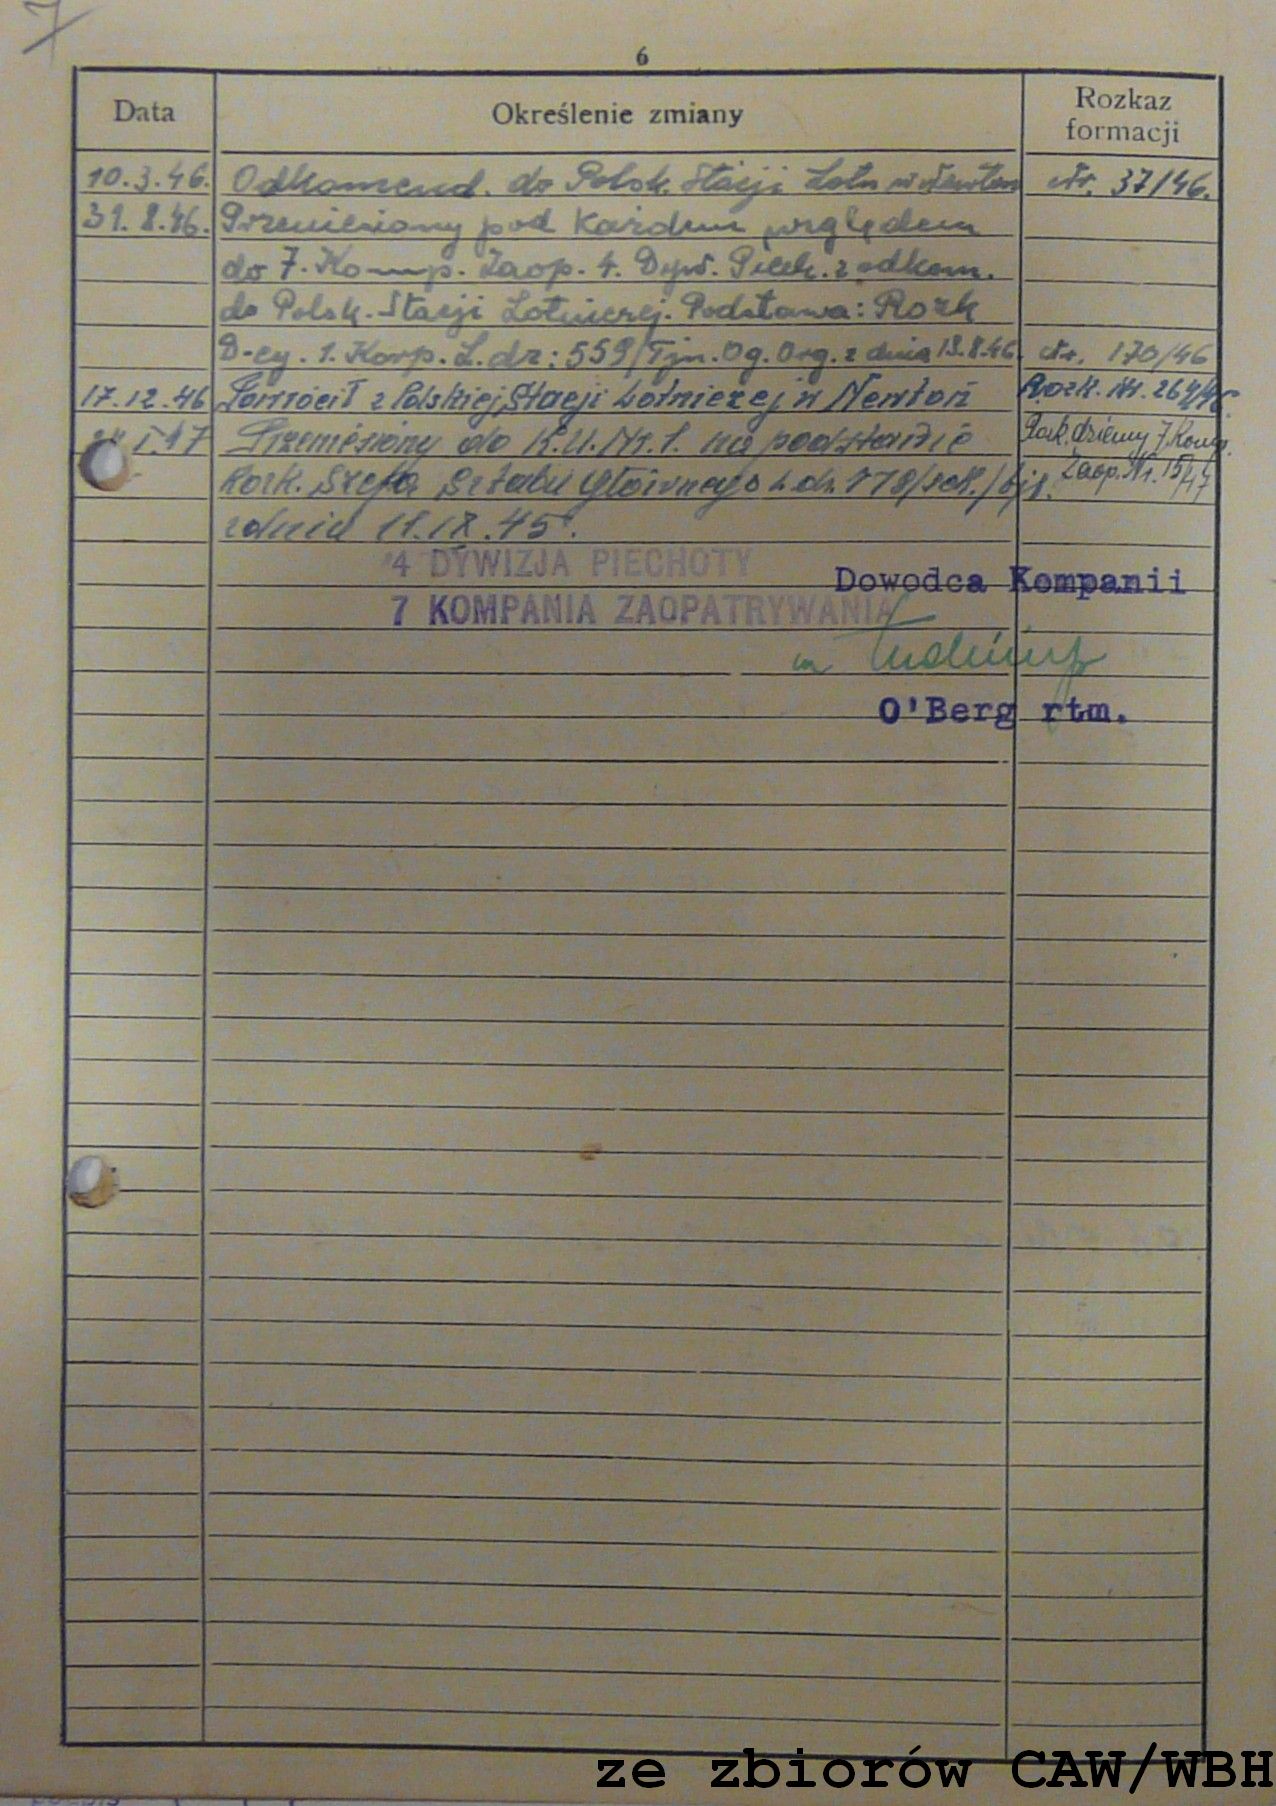 7
6
Data Określenie zmiany Rozkaz formacji
10.3.46. Odkomend. do Polsk. Stacji Lotn w Newton Nr. 37/46.
31.8.46. Przeniesiony pod każdym względem
do 7. Komp. Zaop. 4. Dyw. Piech. z odkom.
do Polsk. Stacji Lotniczej. Podstawa: Rozk
D-cy. 1. Korp. L.dz: 559/Tjn. Og. Org. z dnia 13.8.46 Nr. 170/46
17.12.46 Powrócił z Polskiej Stacji Lotniczej w Newton Rozk. Nr. 264/46.
I.47 Przeniesiony do K.U. Nr. 1. na podstawie Rozk. dzienny 7. Komp.
Rozk. Szefa Sztabu Głównego L.dz. 778/ Zaop. Nr. 15/47
z dnia 11.IX.45.
4 DYWIZJA PIECHOTY
Dowodca Kompanii
7 KOMPANIA ZAOPATRYWANIA
O'Berg rtm.
ze zbiorów CAW/WBH